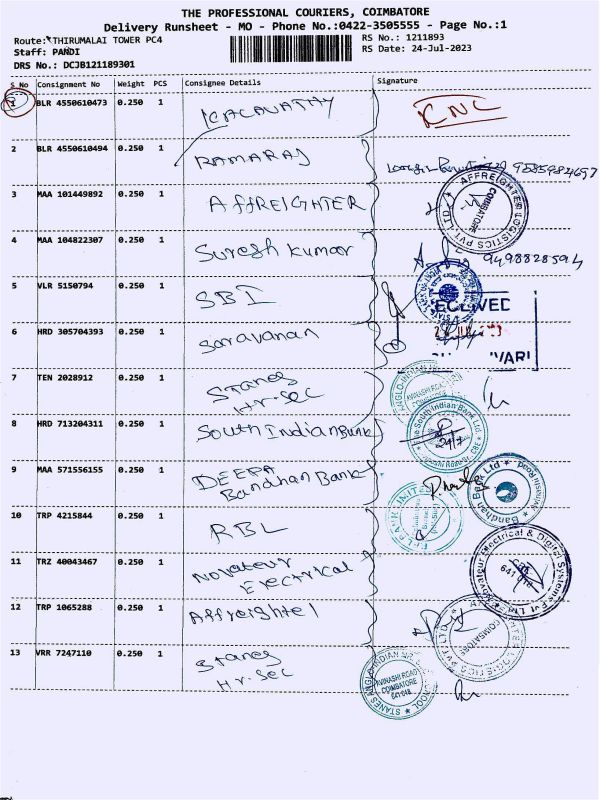 THE PROFESSIONAL COURIERS, COIMBATORE
Delivery Runsheet - MO - Phone No.:0422-3505555 - Page No.:1
Route: THIRUMALAI TOWER PC4
RS No.: 1211893
Staff: PANDI
RS Date: 24-Jul-2023
DRS No.: DCJB121189301
S No Consignment No Weight PCS Consignee Details Signature
1 BLR 4550610473 0.250 1 KNC
2 BLR 4550610494 0.250 1 RAMARAJ
3 MAA 101449892 0.250 1 AFFREIGHTER
AFFREIGHTER LOGISTICS PVT LTD COIMBATORE
4 MAA 104822307 0.250 1 Suresh Kumar
5 VLR 5150794 0.250 1 SBI
6 HRD 305704393 0.250 1 Saravanan
7 TEN 2028912 0.250 1 Stanes
Hr.Sec
8 HRD 713204311 0.250 1 South Indian Bank
The South Indian Bank Ltd
24/7
9 MAA 571556155 0.250 1 DEEPA
Bandhan Bank
Bandhan Bank Ltd
10 TRP 4215844 0.250 1 RBL
11 TRZ 40043467 0.250 1 Novateur
Electrical
Novateur Electrical & Digital Systems Pvt Ltd
12 TRP 1065288 0.250 1
COIMBATORE
13 VRR 7247110 0.250 1 Stanes
Hr.Sec
AVINASHI ROAD
COIMBATORE
641 018